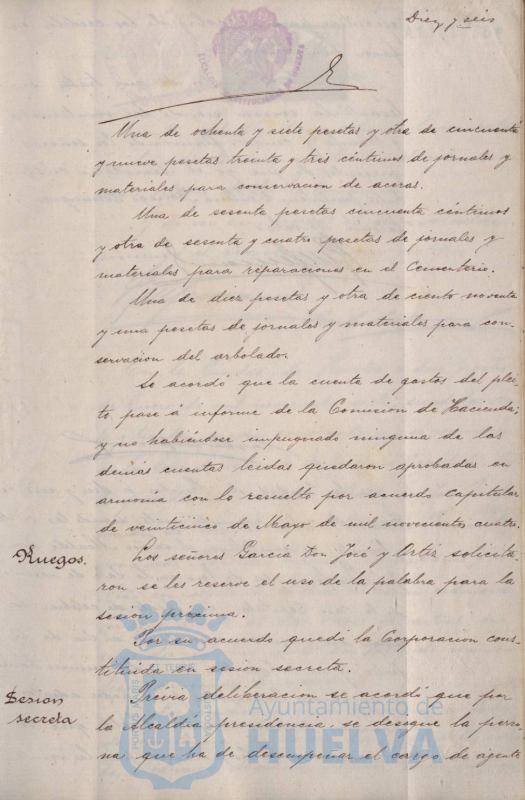 Diez y seis
Una de ochenta y siete pesetas y otra de cincuenta
y nueve pesetas treinta y tris céntimos de jornales y
materiales para conservacion de aceras.
Una de sesenta pesetas cincuenta céntimos
y otra de sesenta y cuatro pesetas de jornales y
materiales para reparaciones en el Cementerio.
Una de diez pesetas y otra de ciento noventa
y una pesetas de jornales y materiales para con-
servacion del arbolado.
Se acordó que la cuenta de gastos del plei-
to, pase á informe de la Comision de Hacienda;
y no habiéndose impugnado ninguna de las
demás cuentas leidas quedaron aprobadas en
armonía con lo resuelto por acuerdo capitular
de veinticinco de Mayo de mil novecientos cuatro.
Ruegos.
Los señores García Don José y Ortiz solicita-
ron se les reserve el uso de la palabra para la
sesion próxima.
Por su acuerdo quedó la Corporacion cons-
tituida en sesion secreta.
Sesion
secreta
Prévia deliberacion se acordó que por
la Alcaldía presidencia, se designe la perso-
na que ha de desempeñar el cargo de agente
Ayuntamiento de
HUELVA